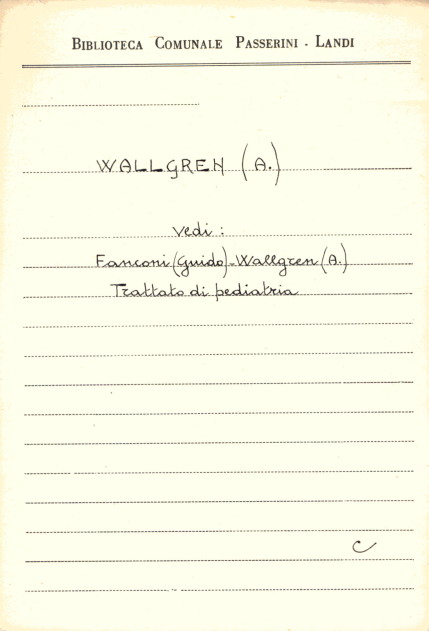 BIBLIOTECA COMUNALE PASSERINI - LANDI
WALLGREN (A.)
vedi :
Fanconi (Guido) - Wallgren (A.)
Trattato di pediatria
C